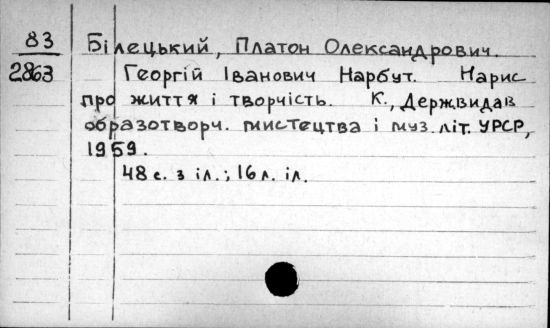 83
2863
Білецький, Платон Олександрович.
Георгій Іванович Нарбут. Нарис
про життя і творчість. К., Держвидав
образотворч. мистецтва і муз. літ. УРСР,
1959.
48 с. з іл.; 16 л. іл.